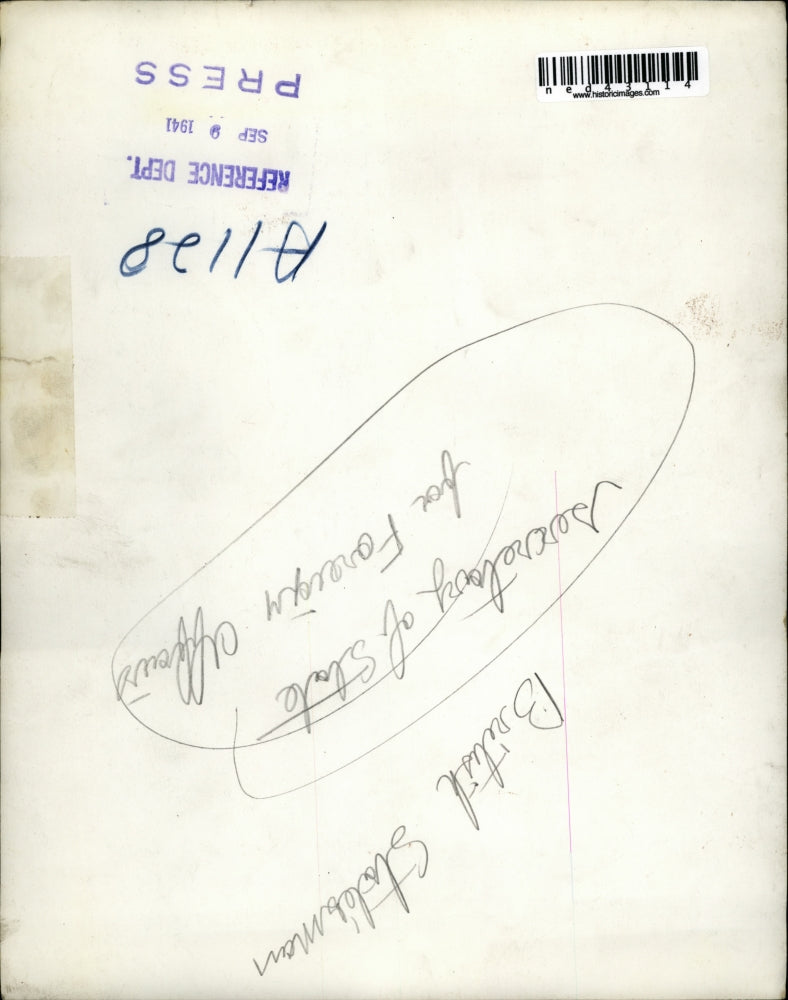 ned43114
www.historicimages.com
A1198
REFERENCE DEPT.
SEP 9 1941
PRESS
British Statesman
Secretary of State
for Foreign Affairs